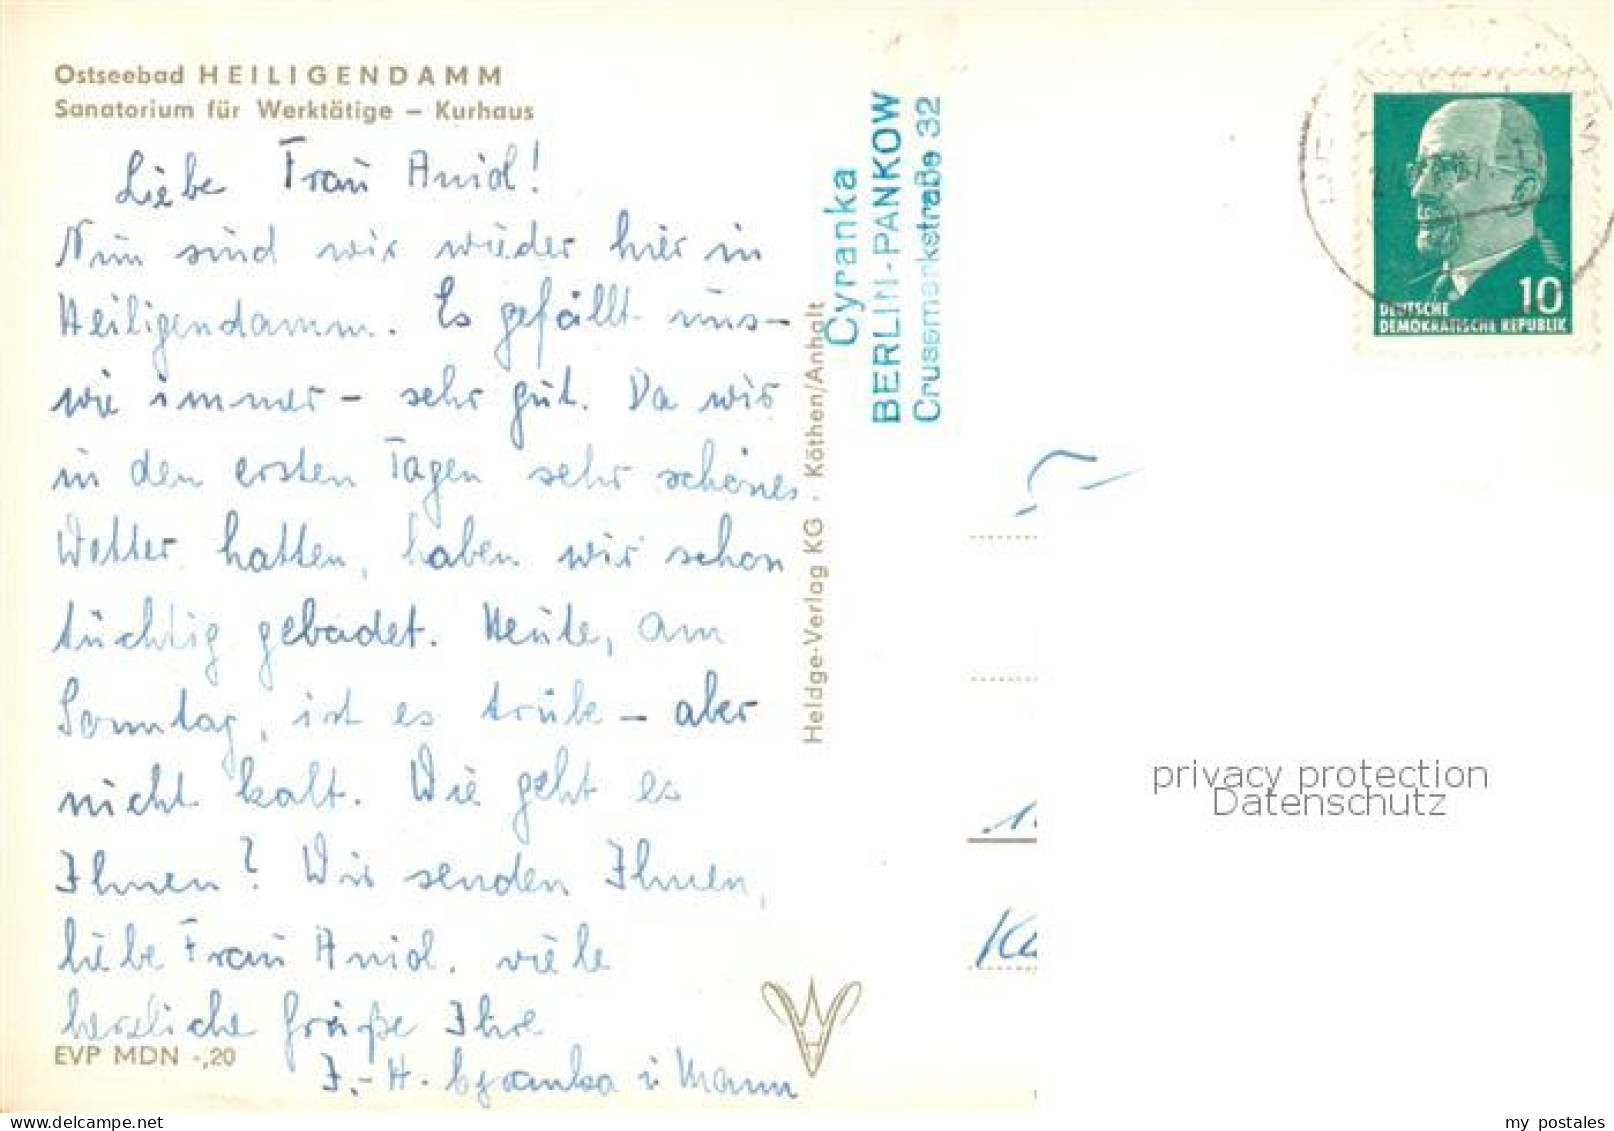 Ostseebad HEILIGENDAMM
Sanatorium für Werktätige – Kurhaus
Liebe Frau Arnid!
Nun sind wir wieder hier in
Heiligendamm. Es gefällt uns –
wie immer – sehr gut. Da wir
in den ersten Tagen sehr schönes
Wetter hatten, haben wir schon
tüchtig gebadet. Heute, am
Sonntag, ist es trübe – aber
nicht kalt. Wie geht es
Ihnen? Wir senden Ihnen,
liebe Frau Arnid, viele
herzliche Grüße Ihre
I.-H. Cyranka u. Mann
EVP MDN -,20
Heldge-Verlag KG · Köthen/Anhalt
Cyranka
BERLIN-PANKOW
Crusemarkstraße 32
10
DEUTSCHE
DEMOKRATISCHE REPUBLIK
privacy protection
Datenschutz
www.delcampe.net
my_postales